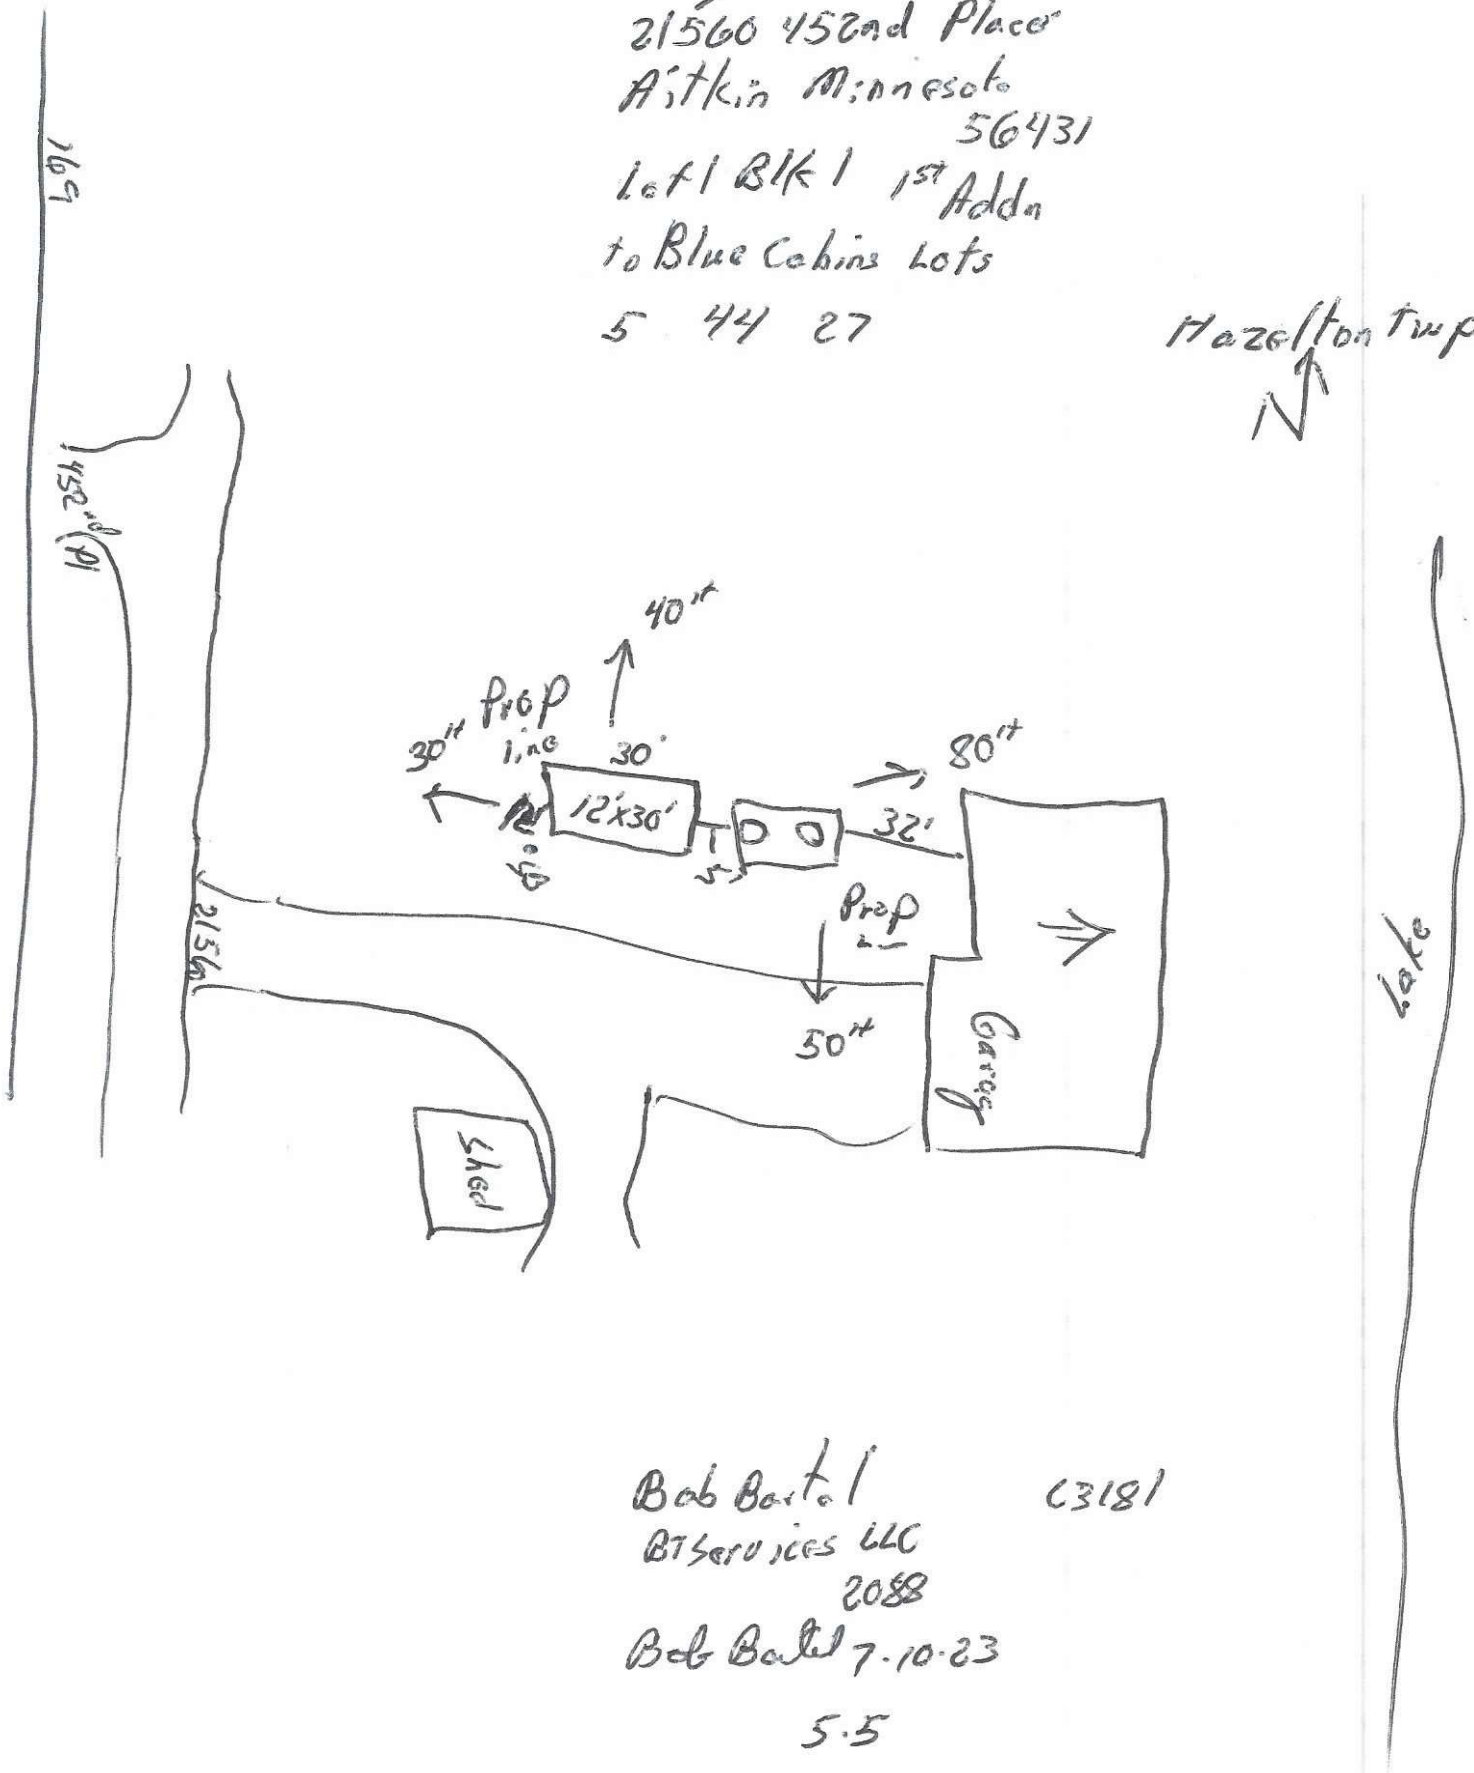 21560 452nd Place
Aitkin Minnesota
56431
Lot 1 Blk 1 1st Addn
to Blue Cabins Lots
5 44 27
Hazelton Twp
N
169
452nd Pl
40 ft
Prop
line
30 ft
30'
12'x30'
5'
32'
80 ft
Prop
50 ft
2156
Garage
Shed
Lake
Bob Bartel
C3181
BT Services LLC
2088
Bob Bartel 7.10.23
5.5